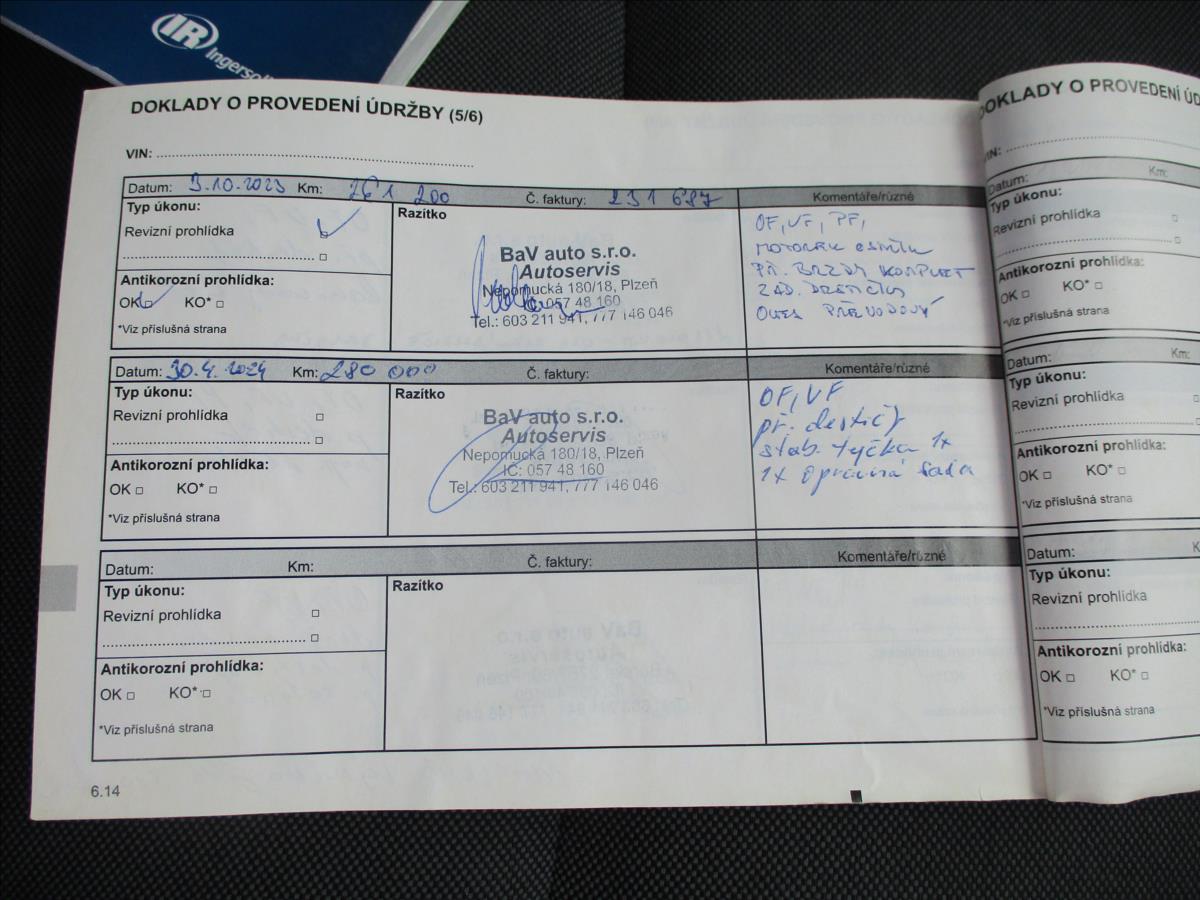 IR
Ingersoll
DOKLADY O PROVEDENÍ ÚDRŽBY (5/6)
VIN:
Datum: 3.10.2023 Km: 261 200 Č. faktury: 231 687 Komentáře/různé
Typ úkonu:
Revizní prohlídka
Antikorozní prohlídka:
OK KO*
*Viz příslušná strana
Razítko
BaV auto s.r.o.
Autoservis
Nepomucká 180/18, Plzeň
IČ: 057 48 160
Tel.: 603 211 941, 777 146 046
OF, VF, PF,
PŘ. BRZDY KOMPLET
ZAD.
OLEJ PŘEVODOVÝ
Datum: 30.4.2024 Km: 280 000 Č. faktury: Komentáře/různé
Typ úkonu:
Revizní prohlídka
Antikorozní prohlídka:
OK KO*
*Viz příslušná strana
Razítko
BaV auto s.r.o.
Autoservis
Nepomucká 180/18, Plzeň
IČ: 057 48 160
Tel.: 603 211 941, 777 146 046
OF, VF
př. destičky
stab. tyčka 1x
1x opravná sada
Datum: Km: Č. faktury: Komentáře/různé
Typ úkonu:
Revizní prohlídka
Antikorozní prohlídka:
OK KO*
*Viz příslušná strana
Razítko
6.14
DOKLADY O PROVEDENÍ
VIN:
Datum: Km:
Typ úkonu:
Revizní prohlídka
Antikorozní prohlídka:
OK KO*
*Viz příslušná strana
Datum: Km:
Typ úkonu:
Revizní prohlídka
Antikorozní prohlídka:
OK KO*
*Viz příslušná strana
Datum:
Typ úkonu:
Revizní prohlídka
Antikorozní prohlídka:
OK KO*
*Viz příslušná strana